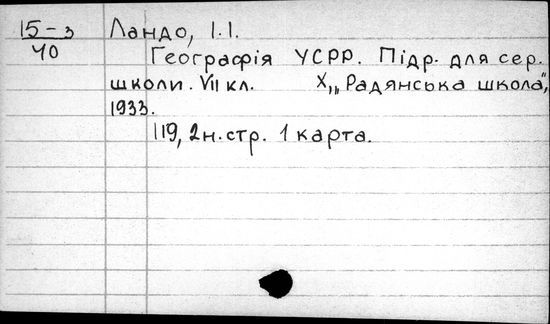 15-3 Ландо, І.І.
40
Географія УСРР. Підр. для сер.
школи. VII кл. Х,, „Радянська школа",
1933.
119, 2 н. стр. 1 карта.